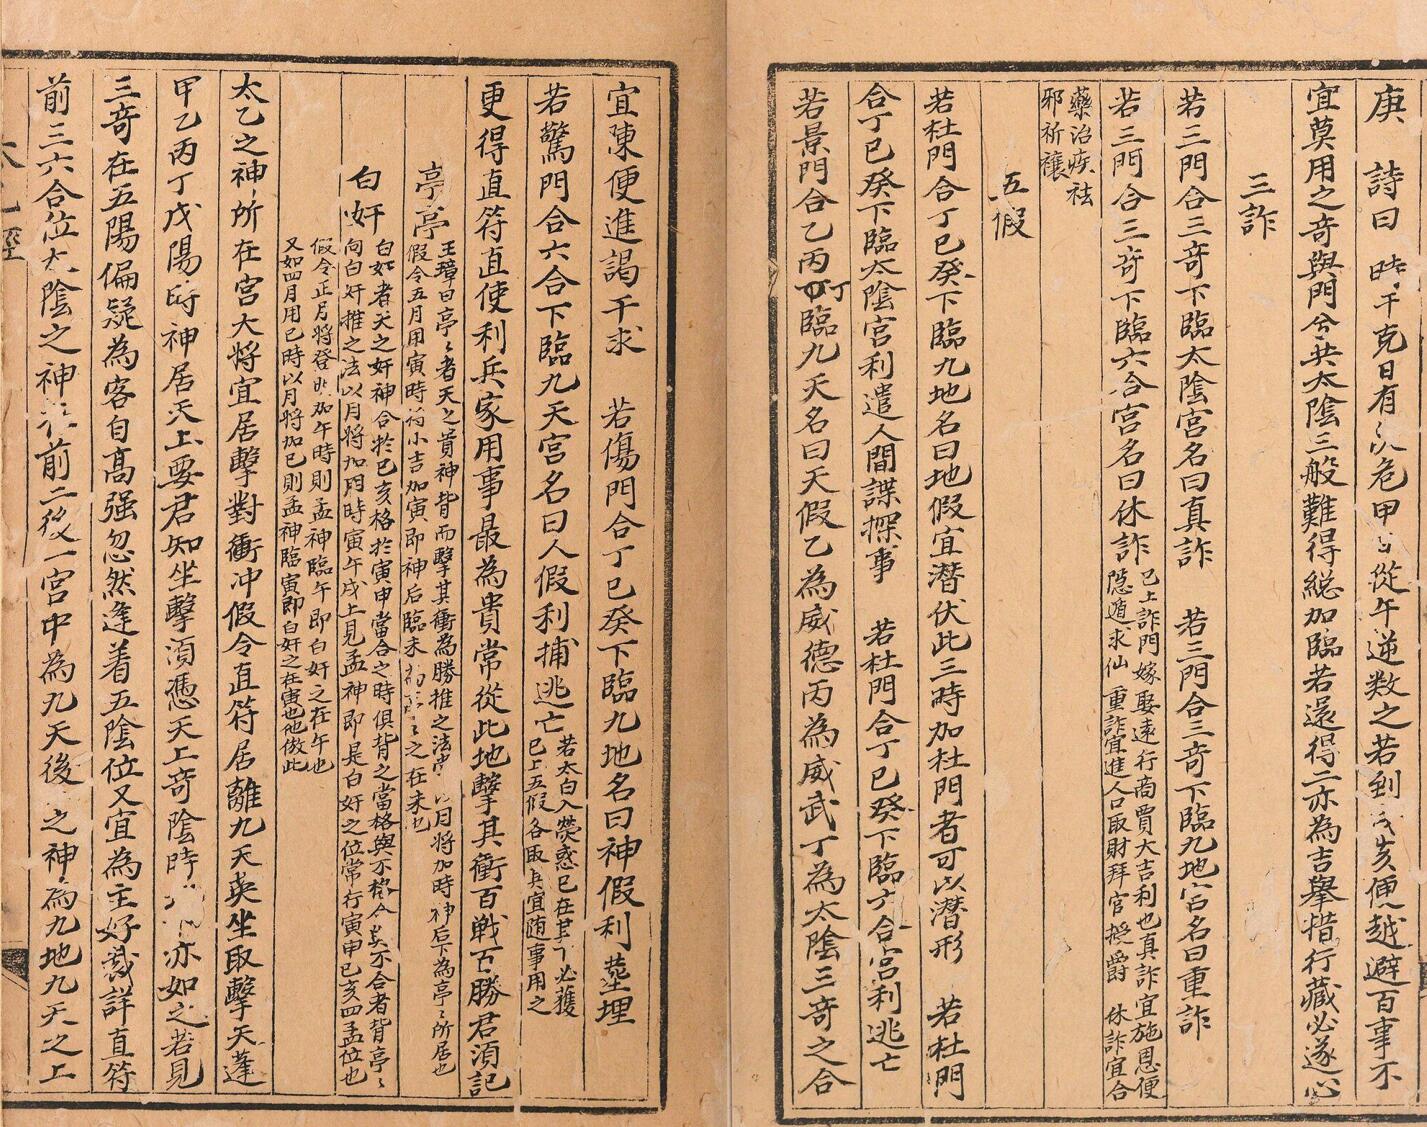 庚　詩曰　時干克日有　危甲　從午逆数之若到　亥便越避百事不
宜莫用之竒與門兮共太陰三般難得総加臨若還得二亦為吉擧措行藏必遂心
三詐
若三門合三竒下臨太陰宮名曰真詐　若三門合三竒下臨九地宮名曰重詐
若三門合三竒下臨六合宮名曰休詐
已上詐門嫁娶遠行商賈大吉利也真詐宜施恩便
隱遁求仙　重詐宜進人口取財拜官授爵　休詐宜合
藥治疾祛
邪祈禳
五假
若杜門合丁已癸下臨九地名曰地假宜潜伏此三時加杜門者可以潜形　若杜門
合丁已癸下臨太陰宮利遣人間諜探事　若杜門合丁已癸下臨六合宮利逃亡
若景門合乙丙丁下臨九天名曰天假乙為威德丙為威武丁為太陰三竒之合
宜陳便進謁干求　若傷門合丁已癸下臨九地名曰神假利塟埋
若驚門合六合下臨九天宮名曰人假利捕逃亡
若太白入熒惑已在其下必獲
已上五假各取其宜随事用之
更得直符直使利兵家用事最為貴常從此地擊其衝百戦百勝君須記
亭亭
王璋曰亭〻者天之貴神背而擊其衝為勝推之法　以月將加時神后下為亭〻所居也
假令五月用寅時　小吉加寅即神后臨未　亭〻之在未也
白奸
白奸者天之奸神合於巳亥格於寅申當合之時俱背之當格與不格令　不合者背亭〻
向白奸推之法以月將加時寅午戌上見孟神即是白奸之位常行寅申巳亥四孟位也
假令正月將登　加午時則孟神臨午即白奸之在午也
又如四月用巳時以月將加巳則孟神臨寅即白奸之在寅也他倣此
太乙之神所在宮大將宜居擊對衝冲假令直符居離九天英坐取擊天蓬
甲乙丙丁戊陽時神居天上要君知坐擊須憑天上竒陰時　亦如之若見
三竒在五陽偏疑為客自高强忽然逢着五陰位又宜為主好裁詳直符
前三六合位太陰之神　前二後一宮中為九天後　之神為九地九天之上